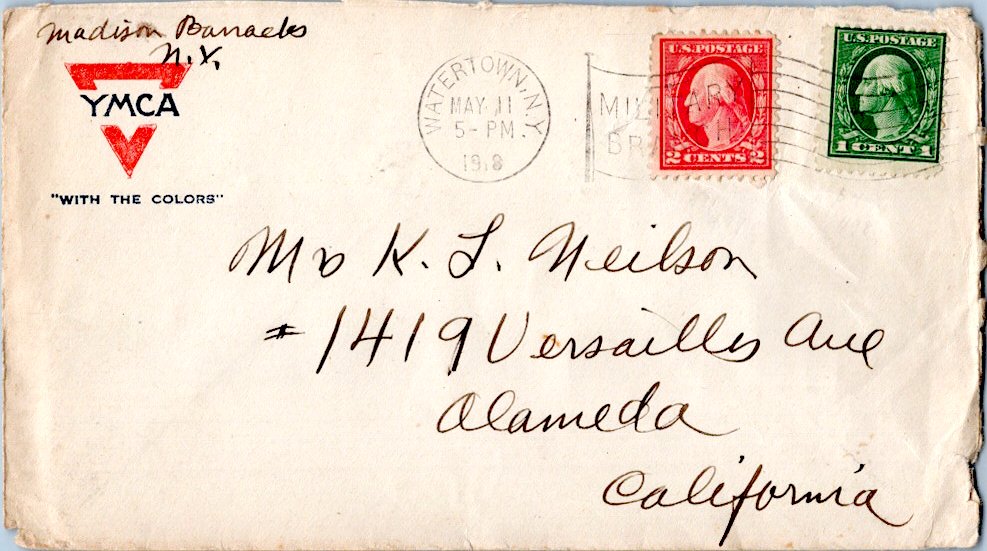 Madison Barracks
N.Y.
YMCA
"WITH THE COLORS"
WATERTOWN, N.Y.
MAY 11
5-PM
1918
MILITARY
BRANCH
U.S. POSTAGE
2 CENTS 2
U.S. POSTAGE
1 CENT 1
Mr K. L. Neilson
#1419 Versailles Ave
Alameda
California